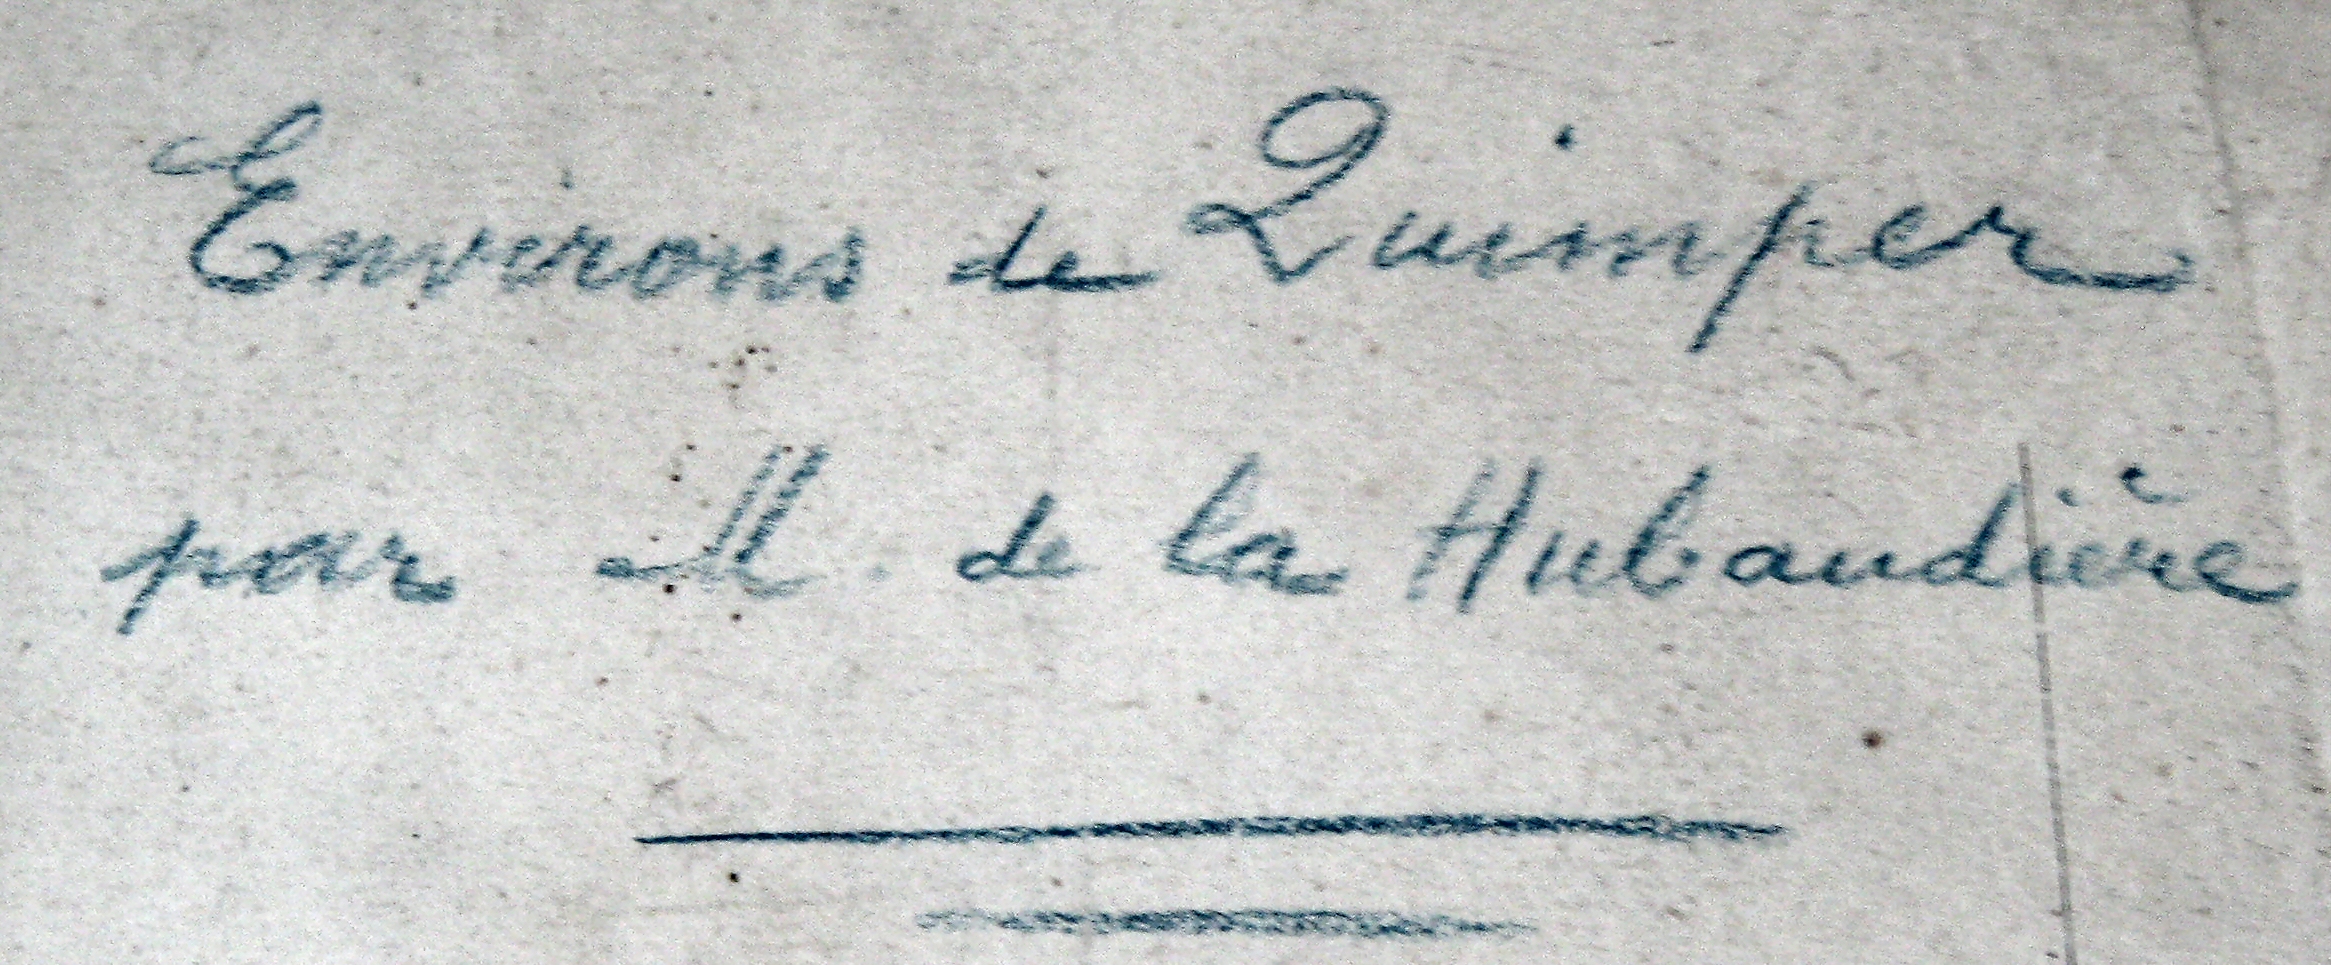 Environs de Quimper
par M. de la Hubaudière